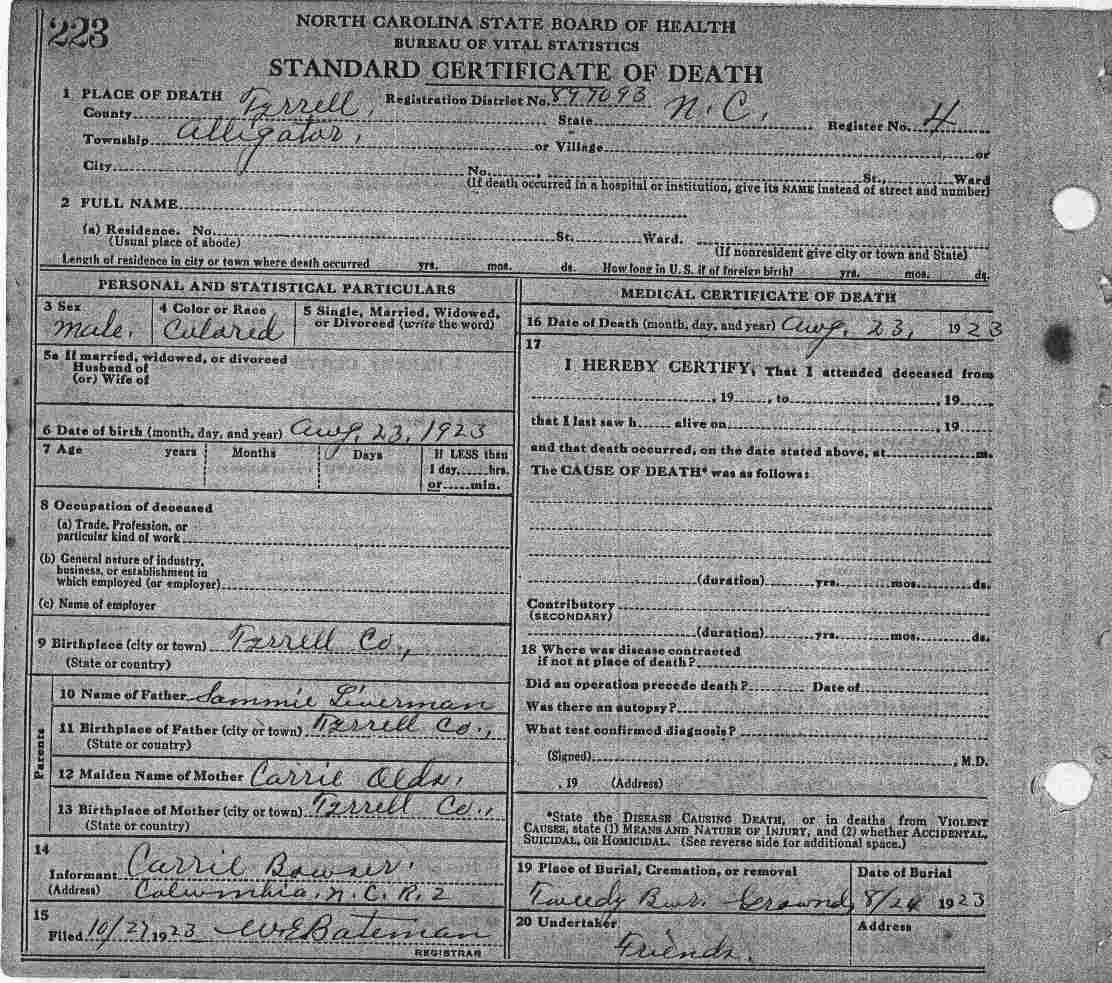 223
NORTH CAROLINA STATE BOARD OF HEALTH
BUREAU OF VITAL STATISTICS
STANDARD CERTIFICATE OF DEATH
1 PLACE OF DEATH
County Tyrrell, Registration District No. 897093 State N.C. Register No. 4
Township Alligator, or Village or
City No. St., Ward
(If death occurred in a hospital or institution, give its NAME instead of street and number)
2 FULL NAME
(a) Residence. No. St. Ward.
(Usual place of abode) (If nonresident give city or town and State)
Length of residence in city or town where death occurred yrs. mos. ds. How long in U.S. if of foreign birth? yrs. mos. ds.
PERSONAL AND STATISTICAL PARTICULARS
3 Sex 4 Color or Race 5 Single, Married, Widowed,
or Divorced (write the word)
Male. Colored
5a If married, widowed, or divorced
Husband of
(or) Wife of
6 Date of birth (month, day, and year) Aug. 23, 1923
7 Age years Months Days If LESS than
1 day,......hrs.
or......min.
8 Occupation of deceased
(a) Trade, Profession, or
particular kind of work
(b) General nature of industry,
business, or establishment in
which employed (or employer)
(c) Name of employer
9 Birthplace (city or town) Tyrrell Co.,
(State or country)
Parents
10 Name of Father Sammie Liverman
11 Birthplace of Father (city or town) Tyrrell Co.,
(State or country)
12 Maiden Name of Mother Carrie Olds.
13 Birthplace of Mother (city or town) Tyrrell Co.,
(State or country)
14
Informant Carrie Bowser.
(Address) Columbia, N.C. R.2
15
Filed 10/27 1923 W E Bateman
REGISTRAR
MEDICAL CERTIFICATE OF DEATH
16 Date of Death (month, day, and year) Aug. 23, 1923
17
I HEREBY CERTIFY, That I attended deceased from
, 19......, to , 19......,
that I last saw h...... alive on , 19......
and that death occurred, on the date stated above, at m.
The CAUSE OF DEATH* was as follows:
(duration) yrs. mos. ds.
Contributory
(SECONDARY)
(duration) yrs. mos. ds.
18 Where was disease contracted
if not at place of death?
Did an operation precede death? Date of
Was there an autopsy?
What test confirmed diagnosis?
(Signed) , M.D.
, 19 (Address)
*State the DISEASE CAUSING DEATH, or in deaths from VIOLENT
CAUSES, state (1) MEANS AND NATURE OF INJURY, and (2) whether ACCIDENTAL,
SUICIDAL, OR HOMICIDAL. (See reverse side for additional space.)
19 Place of Burial, Cremation, or removal Date of Burial
Tweedy Bur. Ground 8/24 1923
20 Undertaker Address
Friends.